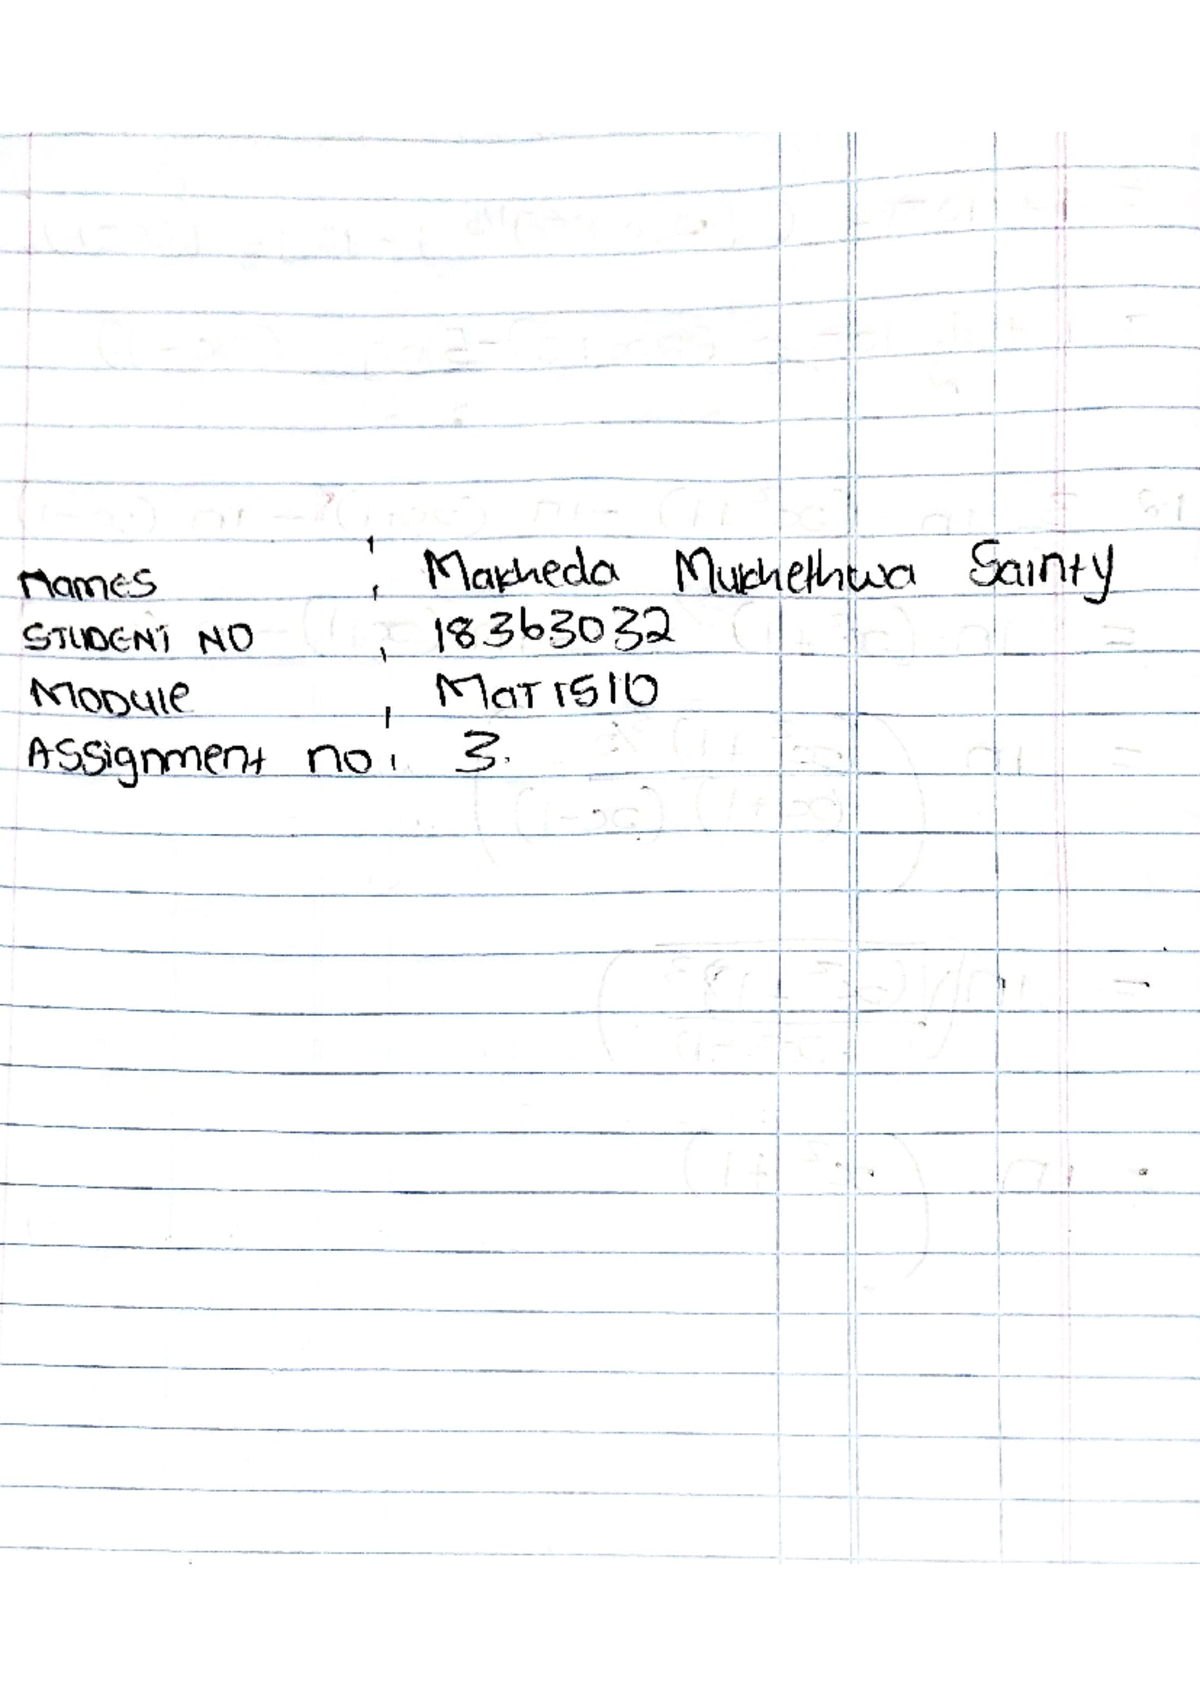 Names : Makheda Mukhethwa Sainty
STUDENT NO : 18363032
Module : MAT1510
Assignment no : 3.